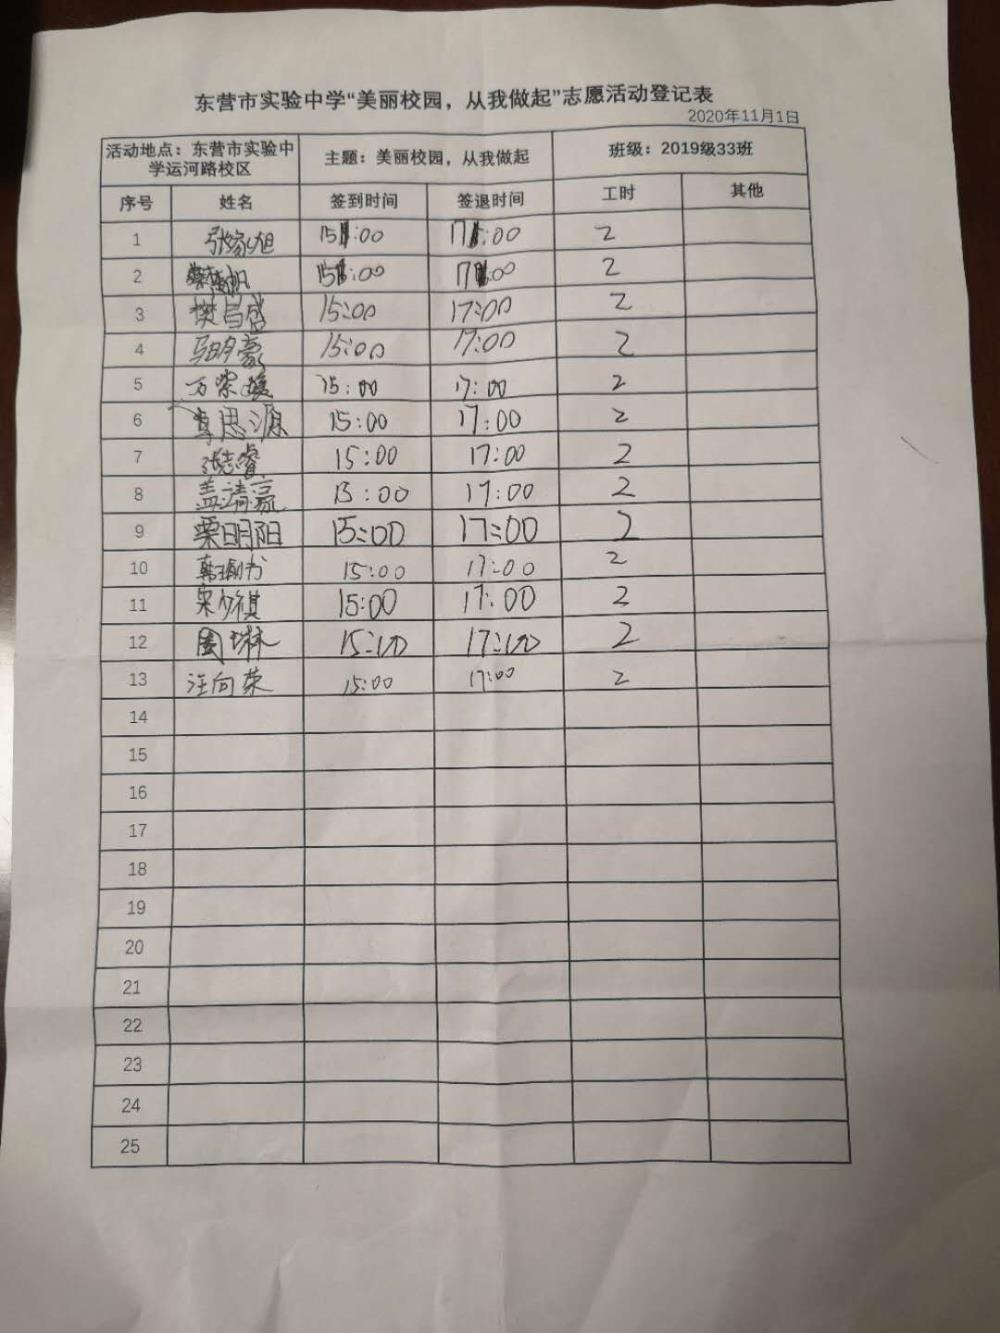 东营市实验中学“美丽校园，从我做起”志愿活动登记表
2020年11月1日
活动地点：东营市实验中学运河路校区 主题：美丽校园，从我做起 班级：2019级33班
序号 姓名 签到时间 签退时间 工时 其他
1 张家旭 15:00 17:00 2
2 15:00 17:00 2
3 樊昌盛 15:00 17:00 2
4 马明豪 15:00 17:00 2
5 万 15:00 17:00 2
6 思源 15:00 17:00 2
7 张志睿 15:00 17:00 2
8 盖靖瀛 15:00 17:00 2
9 栗明阳 15:00 17:00 2
10 韩瑜书 15:00 17:00 2
11 宋少祺 15:00 17:00 2
12 周琳 15:00 17:00 2
13 汪向荣 15:00 17:00 2
14
15
16
17
18
19
20
21
22
23
24
25